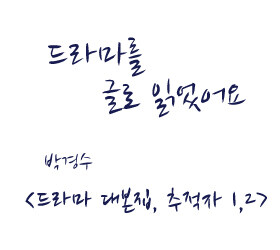 드라마를
글로 읽었어요
박경수
<드라마 대본집, 추적자 1,2>